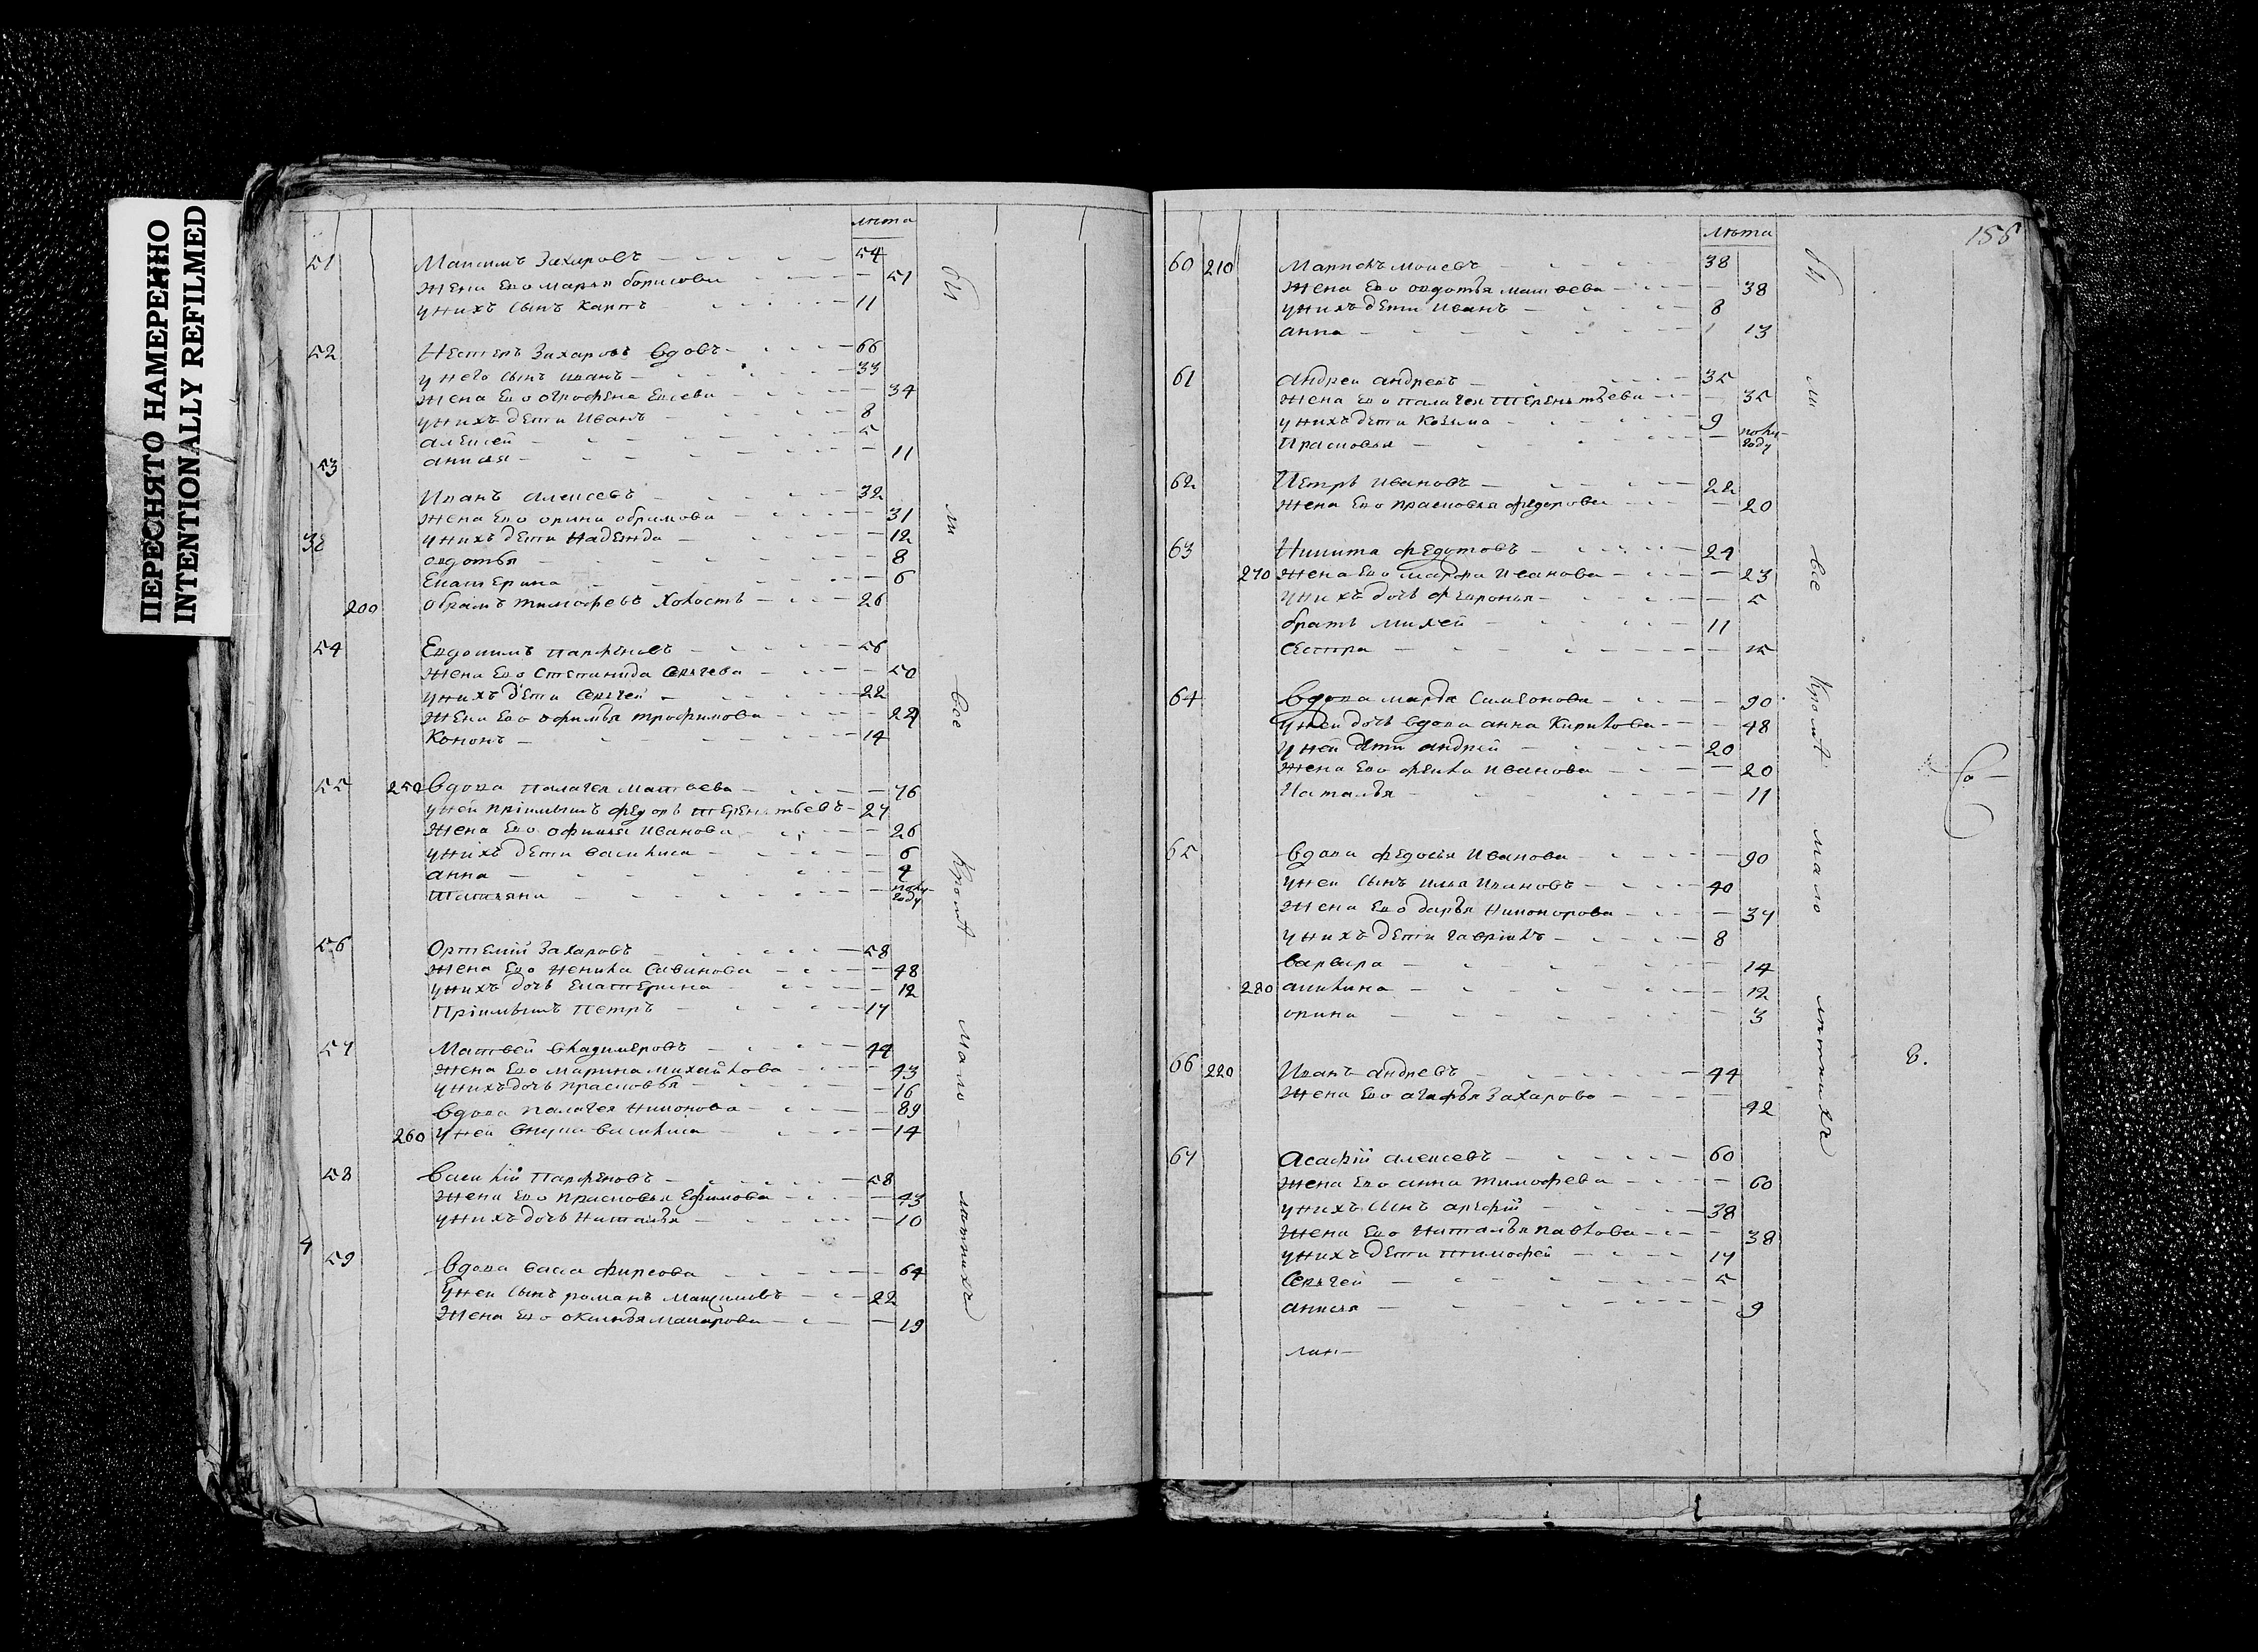 ПЕРЕСНЯТО НАМЕРЕННО
INTENTIONALLY REFILMED
лѣта
51 Максимъ Захаровъ 54
Жена Ево марья борисова 51
у нихъ сынъ Карпъ 11
52 Нестеръ Захаровъ вдовъ 66
у него сынъ иванъ 33
Жена Ево огрофена Евсева 34
у нихъ дети Иванъ 8
алексей 5
анисья 11
53
Иванъ алексевъ 32
Жена Ево орина обрамова 31
у нихъ дети надежда 12
овдотья 8
Екатерина 6
200 обрамъ тимофевъ холостъ 26
54 Евдокимъ парфеновъ 56
Жена Ево степанида Сергева 50
у нихъ дети Сергей 22
Жена Ево офимья трофимова 22
Кононъ 14
55 250 вдова палагея матвева 76
у ней приимышъ федоръ терентьевъ 27
Жена Ево офимья иванова 26
у нихъ дети василиса 6
анна 4
татьяна полу году
56 Ортемий Захаровъ 58
Жена Ево ненила Савинова 48
у нихъ дочь Екатерина 12
Приимышъ петръ 17
57 Матвей владимеровъ 44
Жена Ево марина михайлова 43
у нихъ дочь прасковья 16
вдова палагея никонова 89
260 у ней внука василиса 14
58 василий парфеновъ 58
Жена Ево прасковья Ефимова 43
у нихъ дочь наталья 10
59 вдова васса фирсова 64
у ней сынъ романъ максимовъ 22
Жена Ево оксинья макарова 19
бы ли все кроме мало летнихъ
лѣта
158
60 210 Маркелъ моисевъ 38
Жена Ево овдотья матвева 38
у нихъ дети иванъ 8
анна 13
61 андреи андревъ 35
Жена Ево палагея терентьева 35
у нихъ дети козьма 9
Прасковья полу году
62 Петръ ивановъ 22
Жена Ево прасковья федорова 20
63 Никита федотовъ 24
270 Жена Ево марфа иванова 23
у нихъ дочь февронья 5
братъ михей 11
сестра 15
64 вдова марфа Симеонова 90
у ней дочь вдова анна Кирилова 48
у ней дети андрей 20
Жена Ево фекла иванова 20
Наталья 11
65 вдова федосья иванова 90
у ней сынъ илья ивановъ 40
Жена Ево дарья никонорова 37
у нихъ дети гаврилъ 8
варвара 14
280 акилина 12
орина 3
66 220 Иванъ андревъ 44
Жена Ево агафья Захарова 42
67 Асафий алексевъ 60
Жена Ево анна тимофева 60
у нихъ сынъ арефий 38
Жена Ево наталья павлова 38
у нихъ дети тимофей 17
Сергей 5
анисья 9
бы ли все кроме мало летнихъ